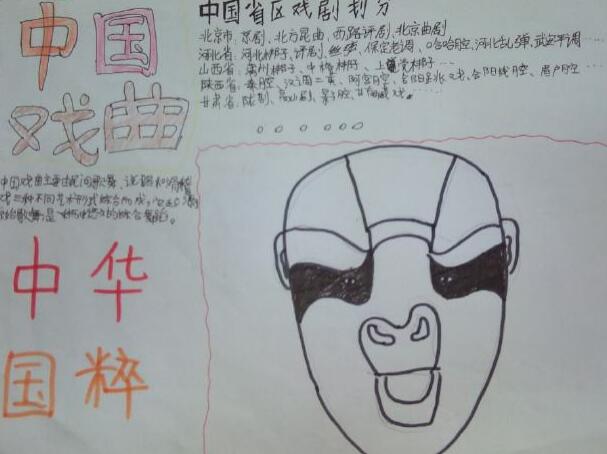 中国
戏曲
中国省区戏剧划分
北京市:京剧、北方昆曲、西路评剧、北京曲剧
河北省:河北梆子、评剧、丝弦、保定老调、哈哈腔、河北乱弹、武安平调……
山西省:蒲州梆子、中梆、上党梆子……
陕西省:秦腔、汉调二黄、阿宫腔、合阳跳戏、合阳线腔、眉户腔……
甘肃省:陇剧、高山剧、影子腔、戏。
中国戏曲主要由民间歌舞、说唱和滑稽
戏三种不同艺术形式综合而成,
歌舞,是一种的综合舞蹈。
中华
国粹